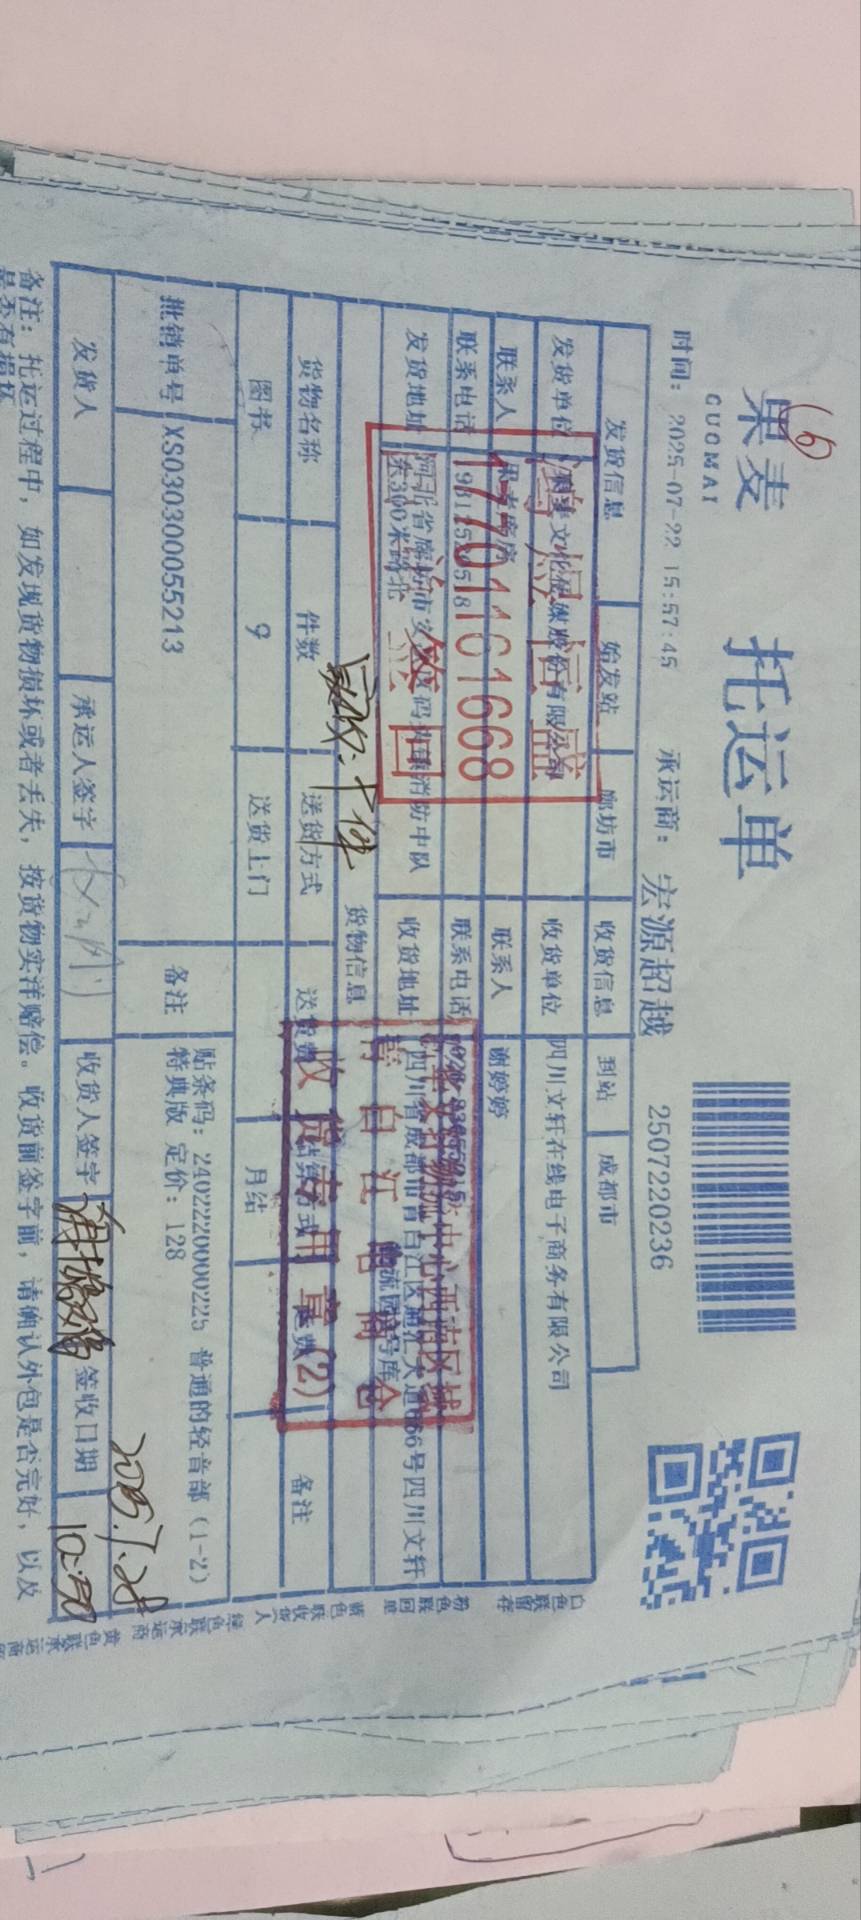 果麦
GUOMAI
托运单
2507220236
时间: 2025-07-22 15:57:45
承运商: 宏源超越
发货信息 始发站 廊坊市 收货信息 到站 成都市
发货单位 文化传媒股份有限公司 收货单位 四川文轩在线电子商务有限公司
联系人 联系人 谢婷婷
联系电话 联系电话
发货地址 河北省廊坊市 消防中队
东300米路北
收货地址 四川省成都市青白江区 大道 号四川文轩
17701161668
签回
青白江 仓
收货专用章(2)
货物信息
货物名称 件数 送货方式 送货费 备注
图书 9 送货上门 月结
实收: 件
批销单号 XS030300055213 备注 贴条码: 2402220000225 普通的轻音部 (1-2)
特典版 定价: 128
发货人 承运人签字 收货人签字 签收日期
2025.7.28
10:30
备注: 托运过程中, 如发现货物损坏或者丢失, 按货物实洋赔偿。收货前签字前, 请确认外包是否完好, 以及
是否有损坏
白色联留存 粉色联回单 蓝色联收货人 绿色联承运商 黄色联承运商